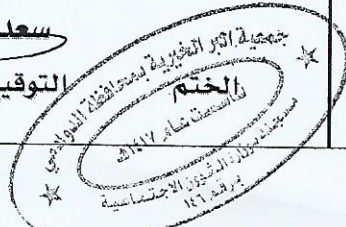 سعد
التوقيع
الختم
جمعية البر الخيرية بمحافظة الدوادمي
تأسست عام ١٤١٧هـ
مسجلة بوزارة الشؤون الاجتماعية
برقم ١٤٦